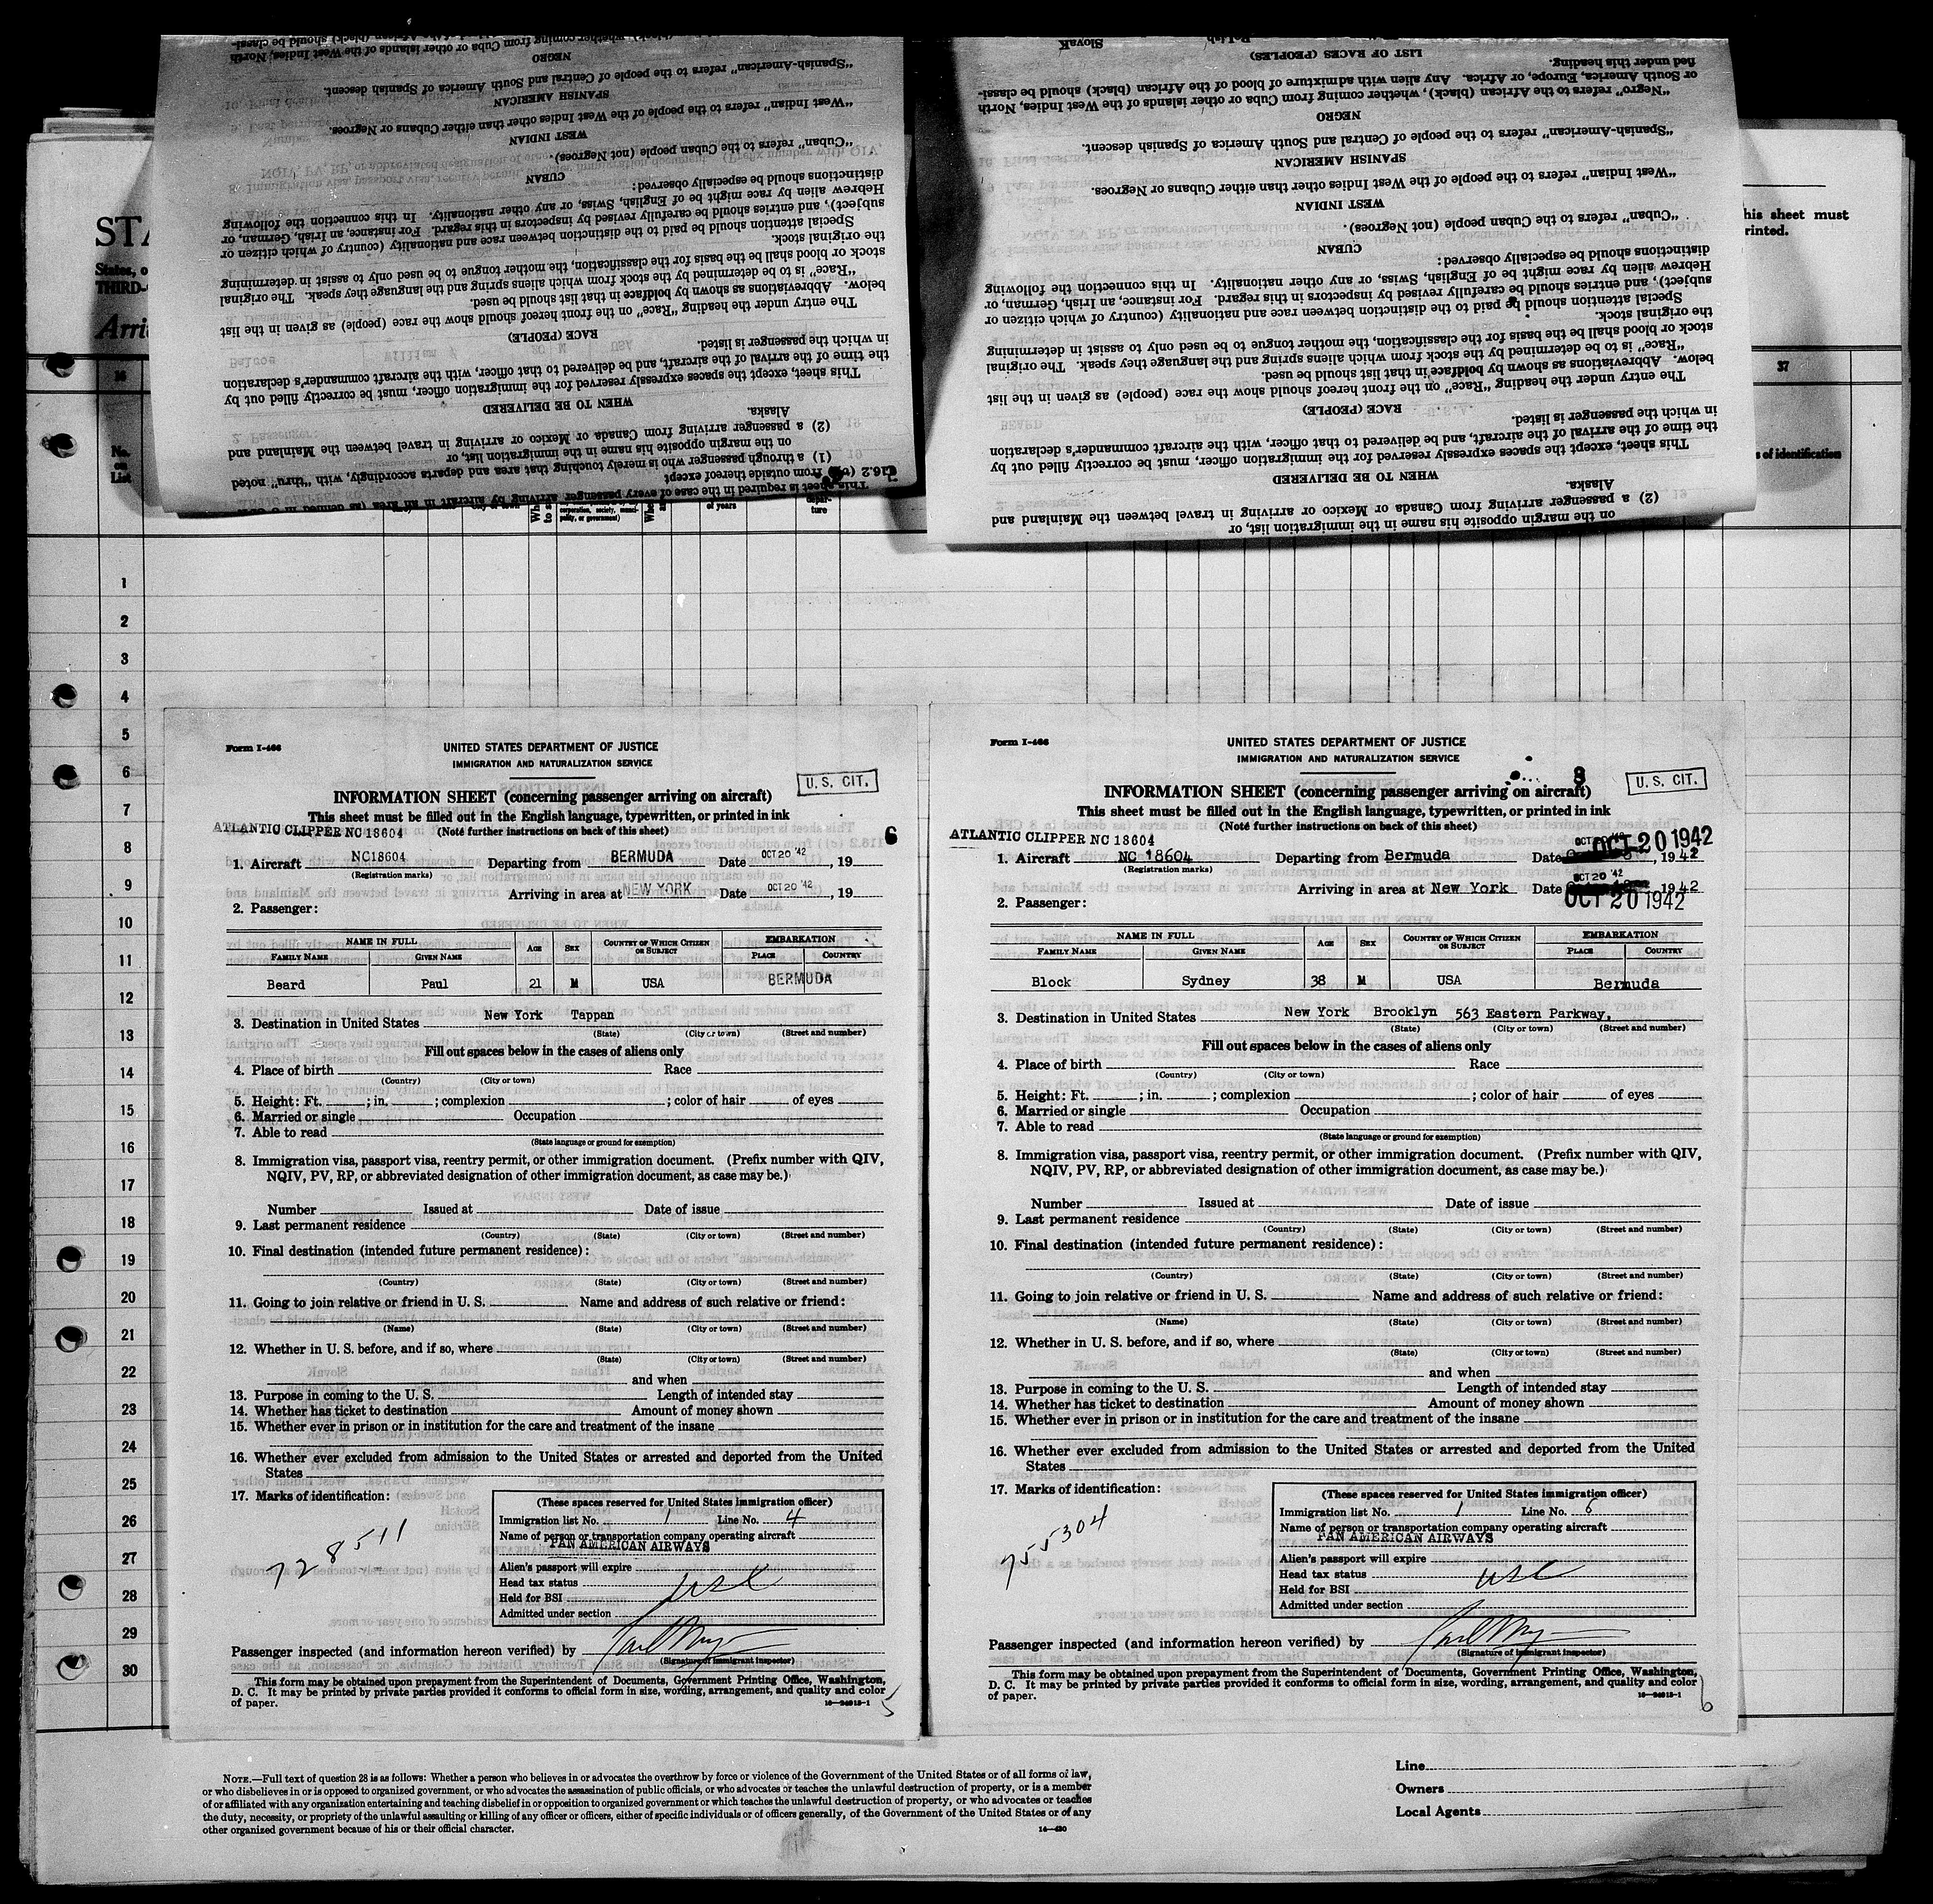 "Negro" refers to the African (black), whether coming from Cuba or other islands of the West Indies, North
or South America, Europe, or Africa. Any alien with admixture of blood of the African (black) should be classi-
fied under this heading.
LIST OF RACES (PEOPLES)
This sheet is required in the case of every passenger arriving by aircraft in an area (as defined in
from outside thereof except
(1) a through passenger who is merely touching that area and departs accordingly, with "thru" noted
on the margin opposite his name in the immigration list, or
(2) a passenger arriving from Canada or Mexico or arriving in travel between the Mainland and
Alaska.
WHEN TO BE DELIVERED
This sheet, except the spaces expressly reserved for the immigration officer, must be correctly filled out by
the time of the arrival of the aircraft, and be delivered to that officer, with the aircraft commander's declaration
in which the passenger is listed.
RACE (PEOPLE)
The entry under the heading "Race" on the front hereof should show the race (people) as given in the list
below. Abbreviations as shown by boldface in that list should be used.
"Race" is to be determined by the stock from which aliens spring and the language they speak. The original
stock or blood shall be the basis for the classification, the mother tongue to be used only to assist in determining
the original stock.
Special attention should be paid to the distinction between race and nationality (country of which citizen or
subject), and entries should be carefully revised by inspectors in this regard. For instance, an Irish, German, or
Hebrew alien by race might be of English, Swiss, or any other nationality. In this connection the following
distinctions should be especially observed:
CUBAN
"Cuban" refers to the Cuban people (not Negroes).
WEST INDIAN
"West Indian" refers to the people of the West Indies other than either Cubans or Negroes.
SPANISH AMERICAN
"Spanish-American" refers to the people of Central and South America of Spanish descent.
NEGRO
on the margin opposite his name in the immigration list, or
(2) a passenger arriving from Canada or Mexico or arriving in travel between the Mainland and
Alaska.
WHEN TO BE DELIVERED
This sheet, except the spaces expressly reserved for the immigration officer, must be correctly filled out by
the time of the arrival of the aircraft, and be delivered to that officer, with the aircraft commander's declaration
in which the passenger is listed.
RACE (PEOPLE)
The entry under the heading "Race" on the front hereof should show the race (people) as given in the list
below. Abbreviations as shown by boldface in that list should be used.
"Race" is to be determined by the stock from which aliens spring and the language they speak. The original
stock or blood shall be the basis for the classification, the mother tongue to be used only to assist in determining
the original stock.
Special attention should be paid to the distinction between race and nationality (country of which citizen or
subject), and entries should be carefully revised by inspectors in this regard. For instance, an Irish, German, or
Hebrew alien by race might be of English, Swiss, or any other nationality. In this connection the following
distinctions should be especially observed:
CUBAN
"Cuban" refers to the Cuban people (not Negroes).
WEST INDIAN
"West Indian" refers to the people of the West Indies other than either Cubans or Negroes.
SPANISH AMERICAN
"Spanish-American" refers to the people of Central and South America of Spanish descent.
NEGRO
STA
States, o
THIRD-
Arri
his sheet must
rinted.
37
s of identification
No.
on
List
1
2
3
4
5
6
7
8
9
10
11
12
13
14
15
16
17
18
19
20
21
22
23
24
25
26
27
28
29
30
Form I-466
UNITED STATES DEPARTMENT OF JUSTICE
IMMIGRATION AND NATURALIZATION SERVICE
U. S. CIT.
INFORMATION SHEET (concerning passenger arriving on aircraft)
This sheet must be filled out in the English language, typewritten, or printed in ink
ATLANTIC CLIPPER NC 18604 (Note further instructions on back of this sheet) 6
1. Aircraft NC18604 Departing from BERMUDA Date OCT 20 '42, 19
(Registration marks)
Arriving in area at NEW YORK Date OCT 20 '42, 19
2. Passenger:
NAME IN FULL AGE SEX COUNTRY OF WHICH CITIZEN OR SUBJECT EMBARKATION
FAMILY NAME GIVEN NAME PLACE COUNTRY
Beard Paul 21 M USA BERMUDA
3. Destination in United States New York Tappan
(State) (City or town) (Street and number)
Fill out spaces below in the cases of aliens only
4. Place of birth Race
(Country) (City or town)
5. Height: Ft. ; in. ; complexion ; color of hair of eyes
6. Married or single Occupation
7. Able to read
(State language or ground for exemption)
8. Immigration visa, passport visa, reentry permit, or other immigration document. (Prefix number with QIV,
NQIV, PV, RP, or abbreviated designation of other immigration document, as case may be.)
Number Issued at Date of issue
9. Last permanent residence
(Country) (State) (City or town) (Street and number)
10. Final destination (intended future permanent residence):
(Country) (State) (City or town) (Street and number)
11. Going to join relative or friend in U. S. Name and address of such relative or friend:
(Name) (State) (City or town) (Street and number)
12. Whether in U. S. before, and if so, where
(State) (City or town) (Street and number)
and when
13. Purpose in coming to the U. S. Length of intended stay
14. Whether has ticket to destination Amount of money shown
15. Whether ever in prison or in institution for the care and treatment of the insane
16. Whether ever excluded from admission to the United States or arrested and deported from the United
States
17. Marks of identification:
728511
(These spaces reserved for United States immigration officer)
Immigration list No. 1 Line No. 4
Name of person or transportation company operating aircraft
PAN AMERICAN AIRWAYS
Alien's passport will expire
Head tax status usc
Held for BSI
Admitted under section
Passenger inspected (and information hereon verified) by
(Signature of immigrant inspector)
This form may be obtained upon prepayment from the Superintendent of Documents, Government Printing Office, Washington,
D. C. It may be printed by private parties provided it conforms to official form in size, wording, arrangement, and quality and color
of paper.
5
Form I-466
UNITED STATES DEPARTMENT OF JUSTICE
IMMIGRATION AND NATURALIZATION SERVICE
8 U. S. CIT.
INFORMATION SHEET (concerning passenger arriving on aircraft)
This sheet must be filled out in the English language, typewritten, or printed in ink
(Note further instructions on back of this sheet)
ATLANTIC CLIPPER NC 18604 OCT 20 '42 OCT 20 1942
1. Aircraft NC 18604 Departing from Bermuda Date , 1942
(Registration marks)
OCT 20 '42
Arriving in area at New York Date , 1942
OCT 20 1942
2. Passenger:
NAME IN FULL AGE SEX COUNTRY OF WHICH CITIZEN OR SUBJECT EMBARKATION
FAMILY NAME GIVEN NAME PLACE COUNTRY
Block Sydney 38 M USA Bermuda
3. Destination in United States New York Brooklyn 563 Eastern Parkway,
(State) (City or town) (Street and number)
Fill out spaces below in the cases of aliens only
4. Place of birth Race
(Country) (City or town)
5. Height: Ft. ; in. ; complexion ; color of hair of eyes
6. Married or single Occupation
7. Able to read
(State language or ground for exemption)
8. Immigration visa, passport visa, reentry permit, or other immigration document. (Prefix number with QIV,
NQIV, PV, RP, or abbreviated designation of other immigration document, as case may be.)
Number Issued at Date of issue
9. Last permanent residence
(Country) (State) (City or town) (Street and number)
10. Final destination (intended future permanent residence):
(Country) (State) (City or town) (Street and number)
11. Going to join relative or friend in U. S. Name and address of such relative or friend:
(Name) (State) (City or town) (Street and number)
12. Whether in U. S. before, and if so, where
(State) (City or town) (Street and number)
and when
13. Purpose in coming to the U. S. Length of intended stay
14. Whether has ticket to destination Amount of money shown
15. Whether ever in prison or in institution for the care and treatment of the insane
16. Whether ever excluded from admission to the United States or arrested and deported from the United
States
17. Marks of identification:
755304
(These spaces reserved for United States immigration officer)
Immigration list No. 1 Line No. 6
Name of person or transportation company operating aircraft
PAN AMERICAN AIRWAYS
Alien's passport will expire
Head tax status usc
Held for BSI
Admitted under section
Passenger inspected (and information hereon verified) by
(Signature of immigrant inspector)
This form may be obtained upon prepayment from the Superintendent of Documents, Government Printing Office, Washington,
D. C. It may be printed by private parties provided it conforms to official form in size, wording, arrangement, and quality and color
of paper.
6
NOTE.—Full text of question 28 is as follows: Whether a person who believes in or advocates the overthrow by force or violence of the Government of the United States or of all forms of law,
or who disbelieves in or is opposed to organized government, or who advocates the assassination of public officials, or who advocates or teaches the unlawful destruction of property, or is a member
of or affiliated with any organization entertaining and teaching disbelief in or opposition to organized government or which teaches the unlawful destruction of property, or who advocates or teaches
the duty, necessity, or propriety of the unlawful assaulting or killing of any officer or officers, either of specific individuals or of officers generally, of the Government of the United States or of any
other organized government because of his or their official character.
Line
Owners
Local Agents